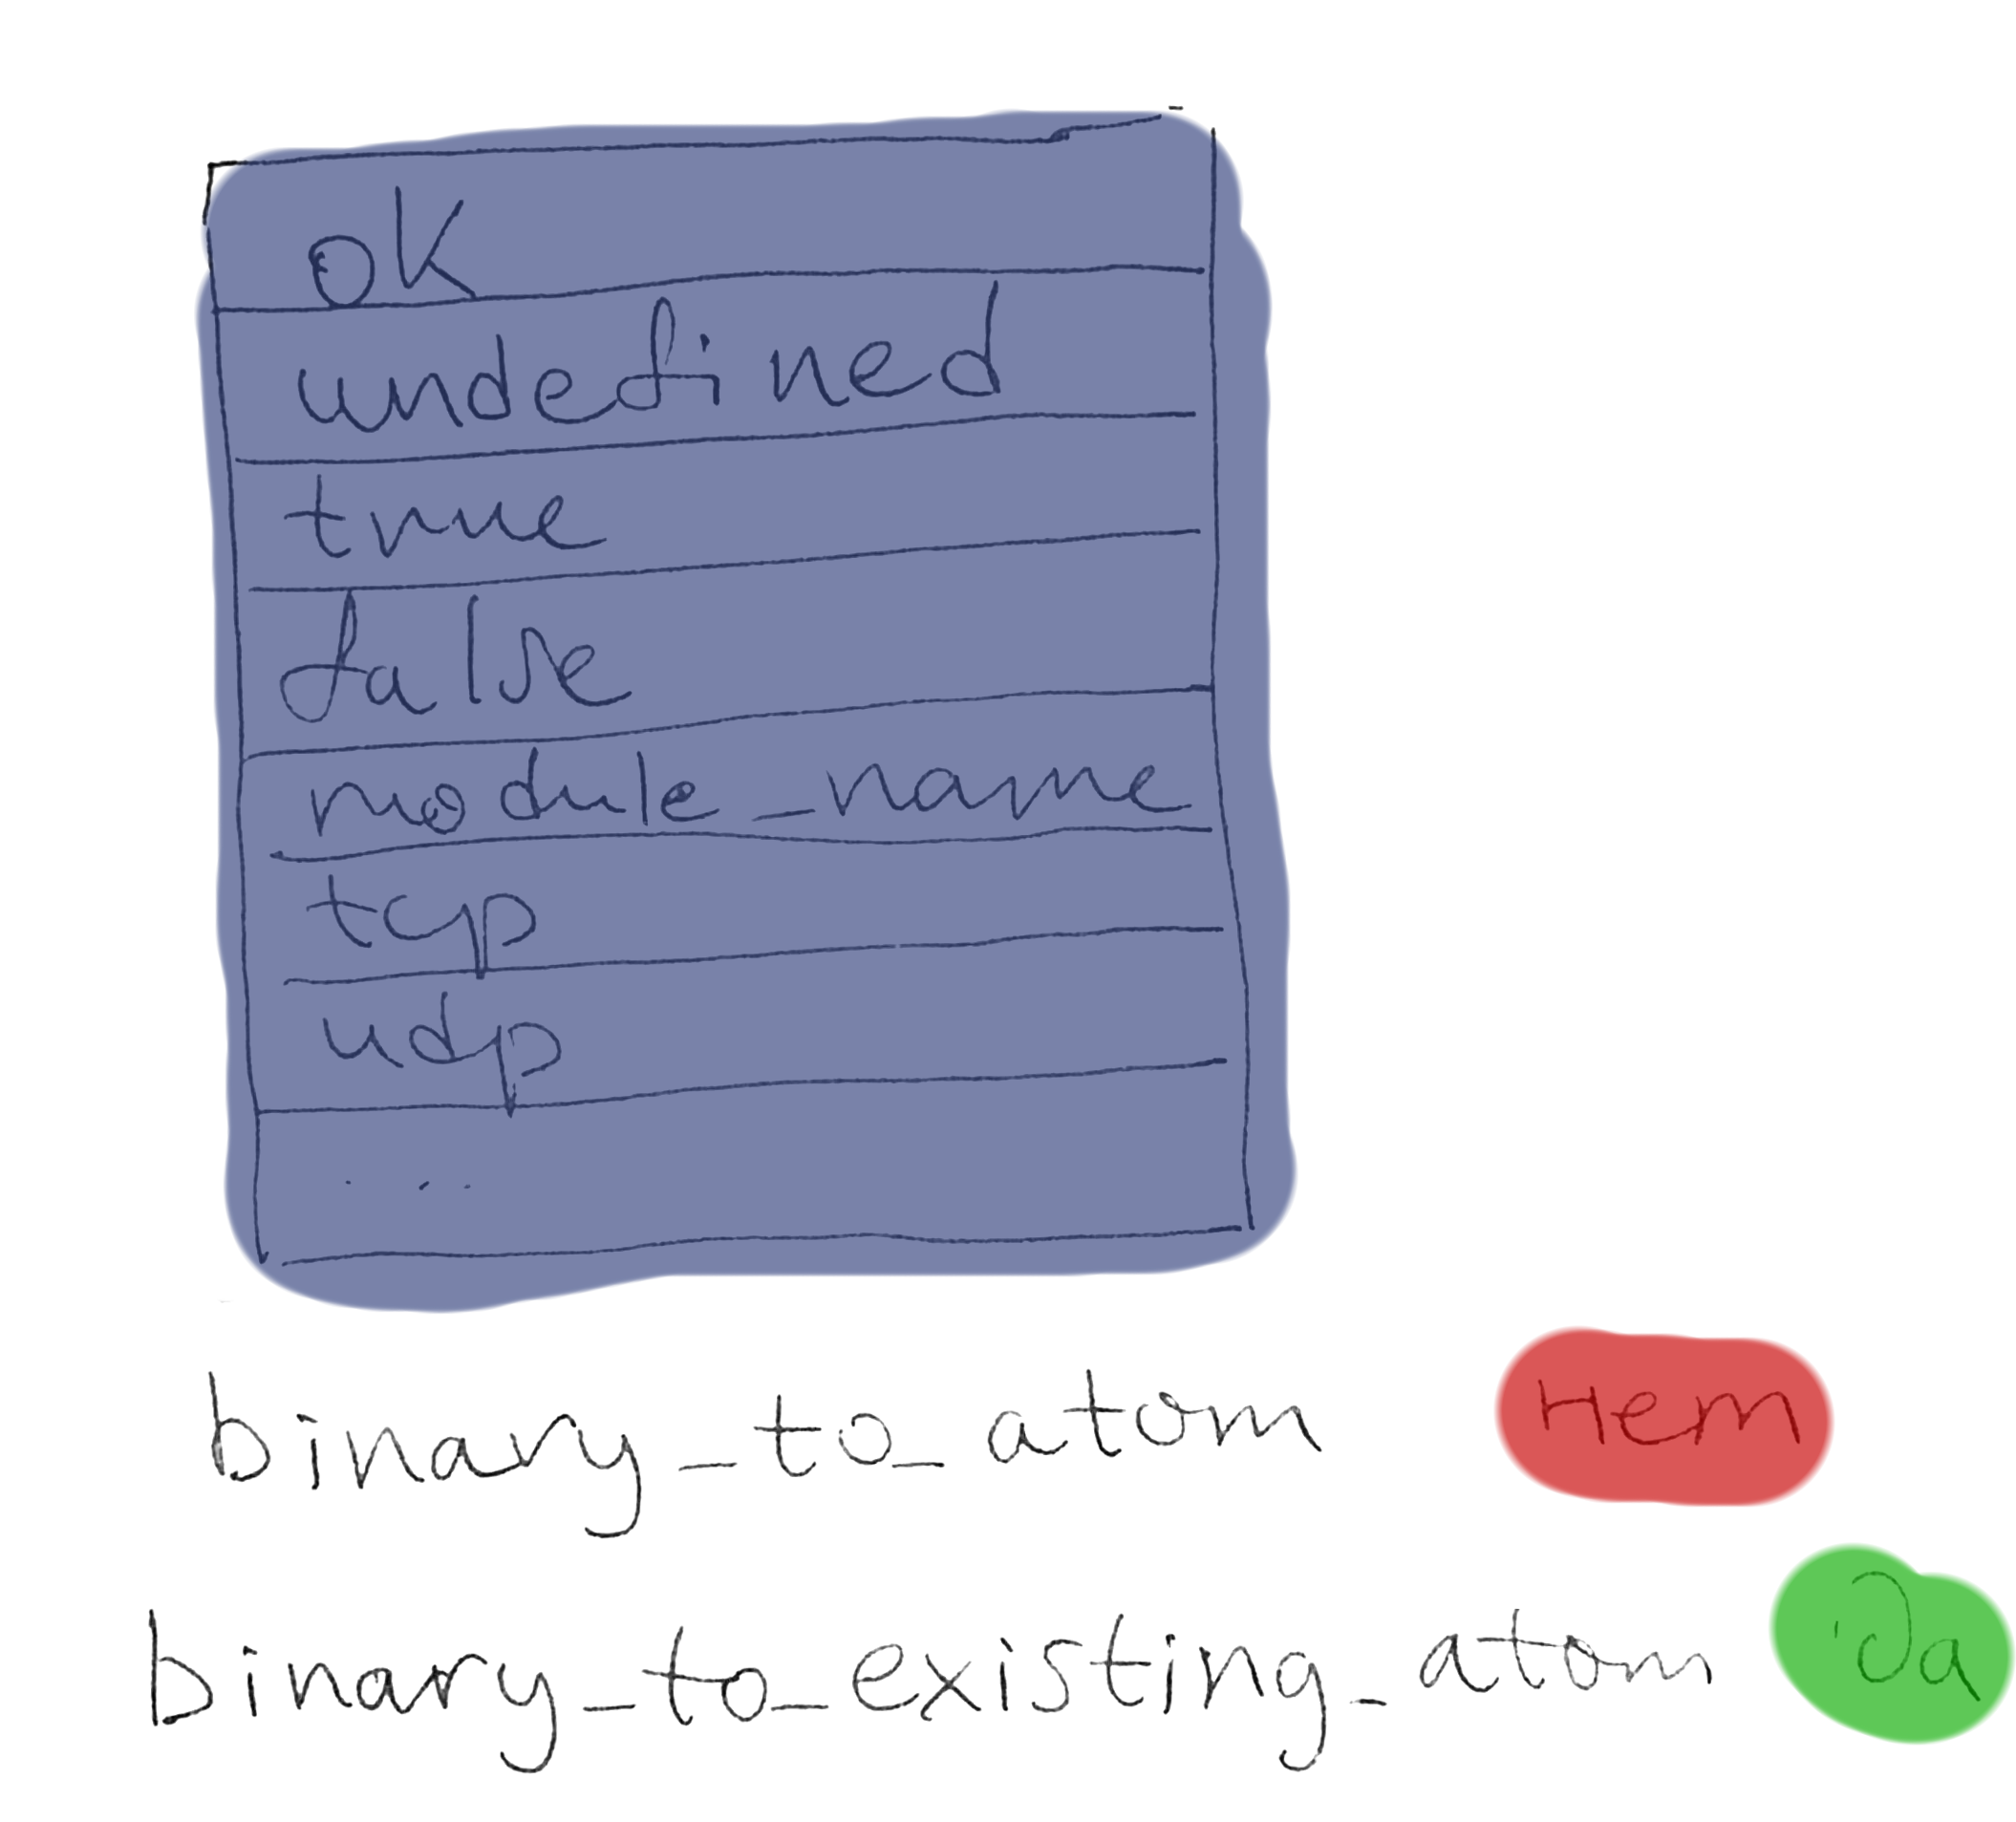 ok
undefined
true
false
module_name
tcp
udp
...
binary_to_atom Нет
binary_to_existing_atom Да